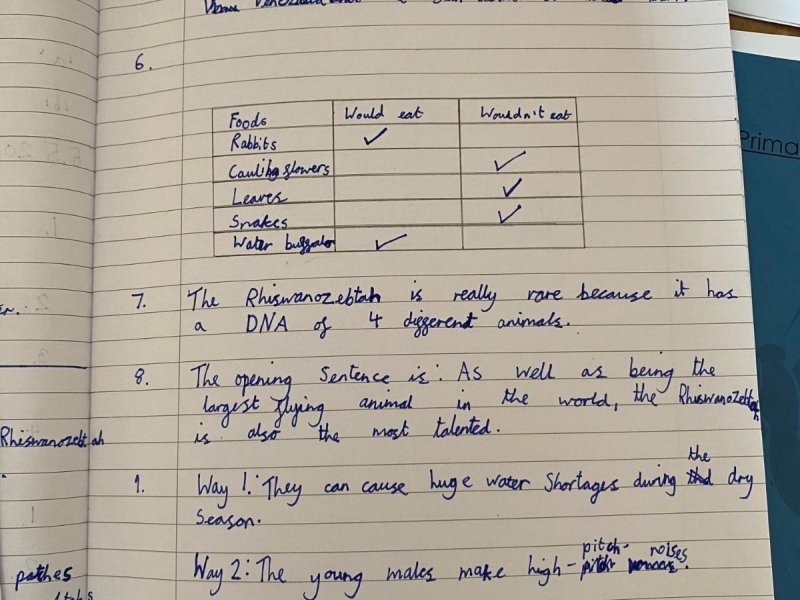 Venezuela
6.
Foods Would eat Wouldn't eat
Rabbits ✓
flowers ✓
Leaves ✓
Snakes ✓
Water buffalo ✓
7. The Rhiswanozebtah is really rare because it has
a DNA of 4 different animals.
8. The opening Sentence is: As well as being the
largest flying animal in the world, the Rhiswanozebtah
is also the most talented.
9. Way 1: They can cause huge water Shortages during the dry
season.
Way 2: The young males make high-pitch- noises.
Rhiswanozebtah
patches
Prima